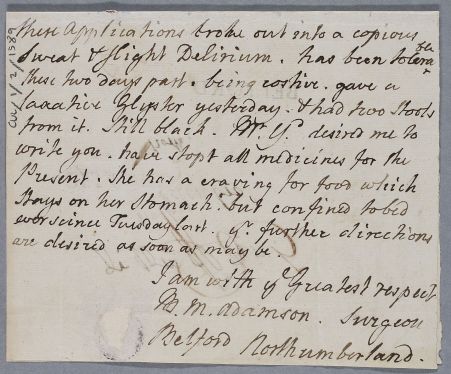 these Applications broke out into a copious
Sweat & slight Delirium. has been tolerable
these two days past. being costive. gave a
laxative Glyster yesterday. & had two Stools
from it. Still black. Mr. Y. desired me to
write you. have stopt all medicines for the
Present. She has a craving for food which
Stays on her Stomach. but confined to bed
ever scince Tuesday last. yr. further directions
are desired as soon as may be.
I am with ye Greatest respect
M. Adamson. Surgeon
Belford Northumberland.
/1/2/1389